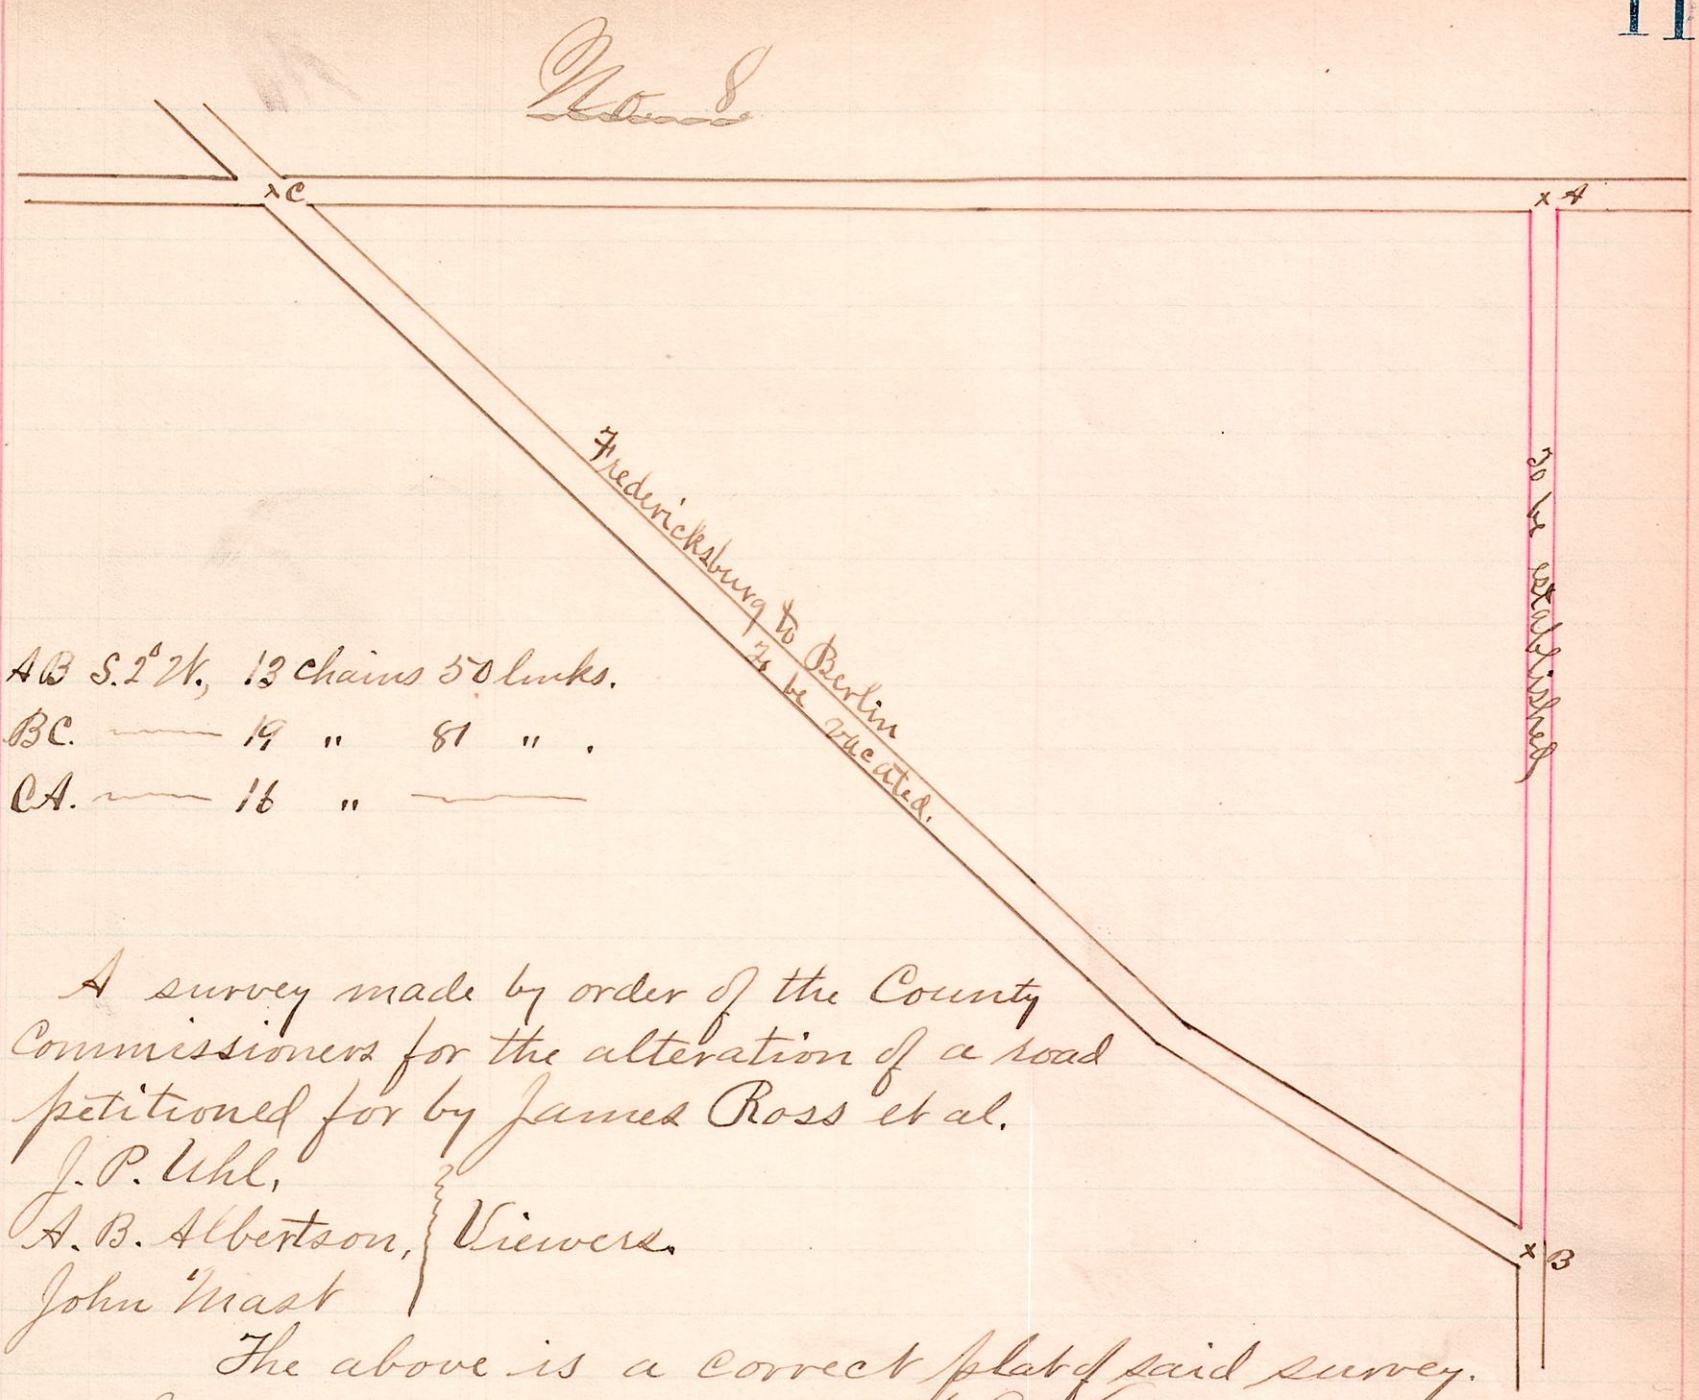 11
No 8
x C
x A
Fredericksburg to Berlin
To be vacated.
To be established
AB S. 2° W., 13 chains 50 links.
BC. —— 19 " 81 " .
CA. —— 16 " ——
A survey made by order of the County
Commissioners for the alteration of a road
petitioned for by James Ross et al.
J. P. Uhl,
A. B. Albertson, } Viewers.
John Mast
x B
The above is a correct plat of said survey.